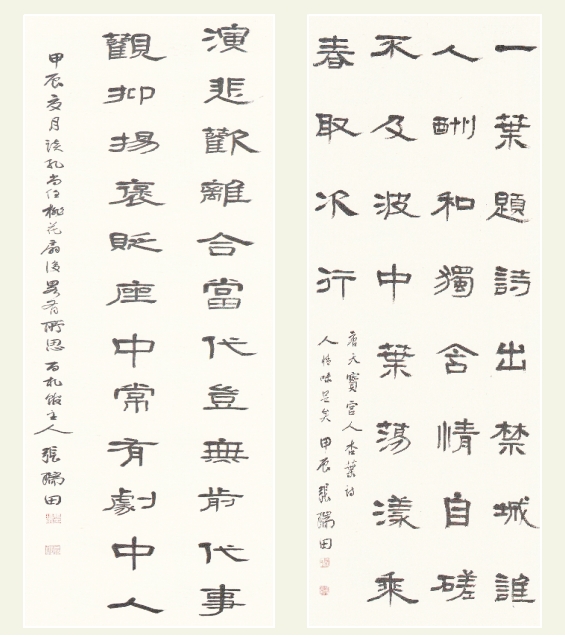 一葉題詩出禁城誰
人酬和獨含情自磋
不及波中葉蕩漾乘
春取次行
唐天寶宮人杏葉詩
人情味足矣甲辰張瑞田
演悲歡離合當代豈無前代事
觀抑揚褒貶座中常有劇中人
甲辰夏月讀孔尚任桃花扇後畧有所思百札館主人張瑞田